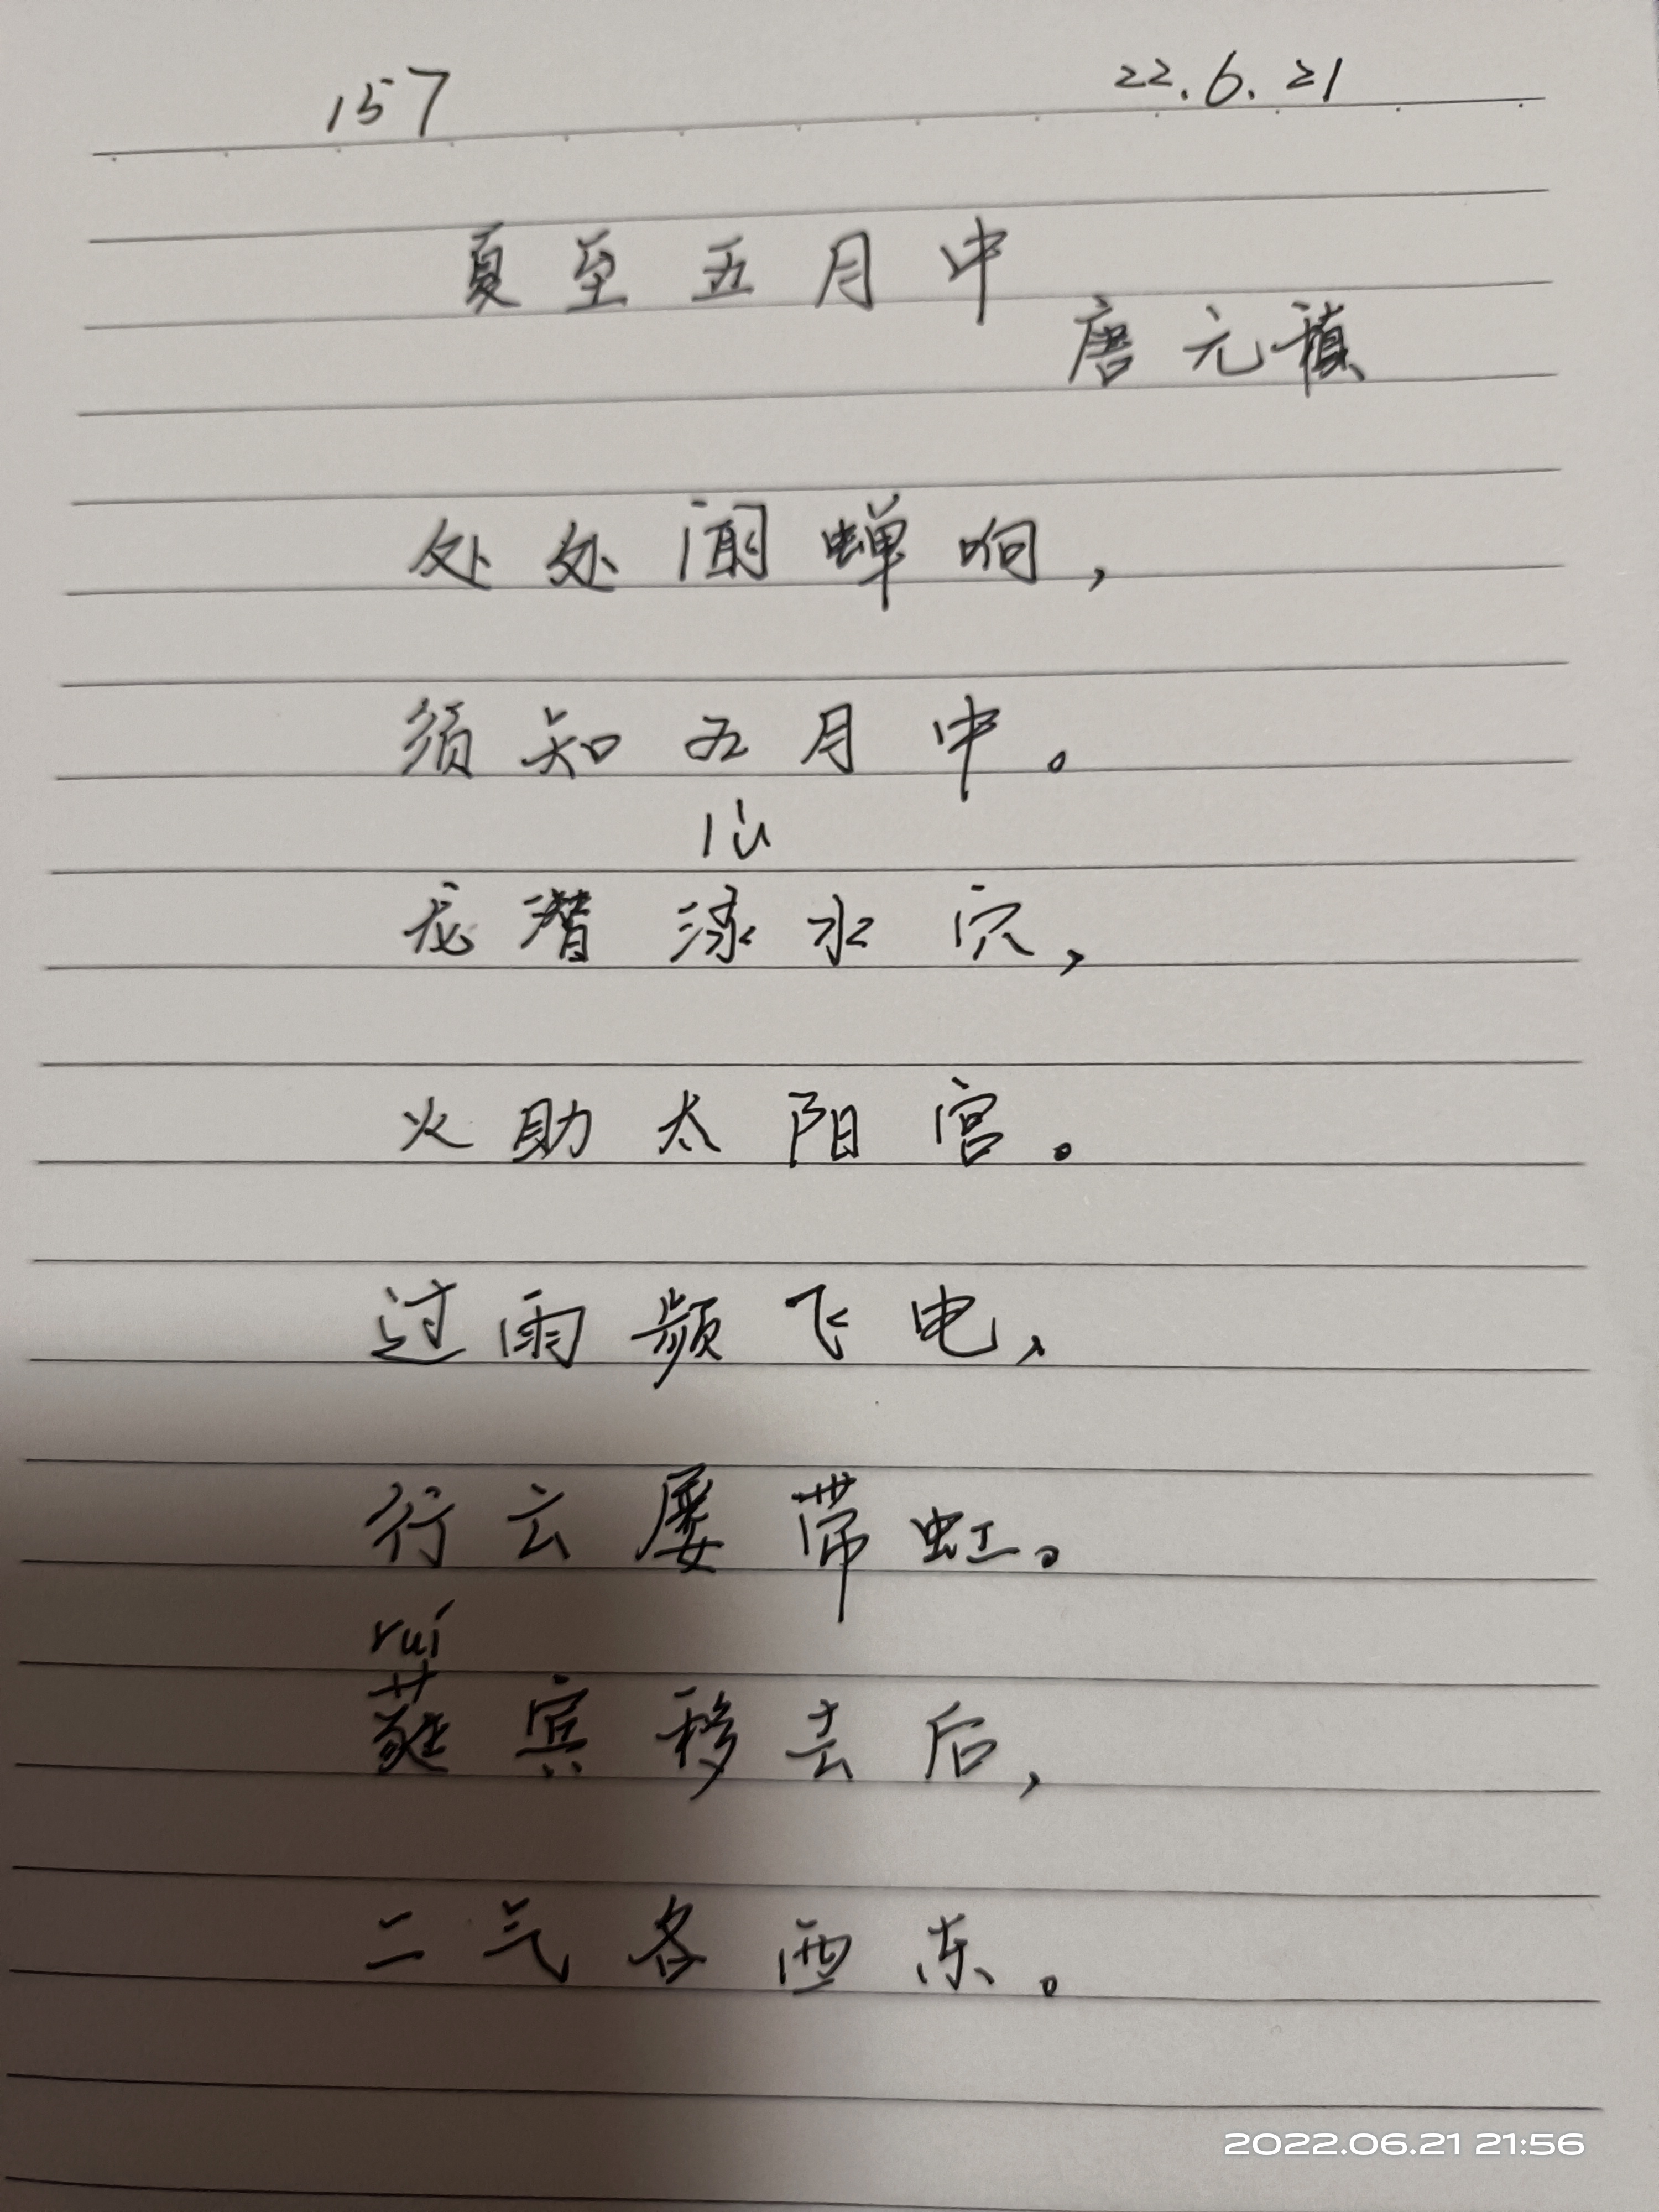 157 22.6.21
夏至五月中
唐 元稹
处处闻蝉响，
须知五月中。
lù
龙潜渌水穴，
火助太阳宫。
过雨频飞电，
行云屡带虹。
ruí
蕤宾移去后，
二气各西东。
2022.06.21 21:56